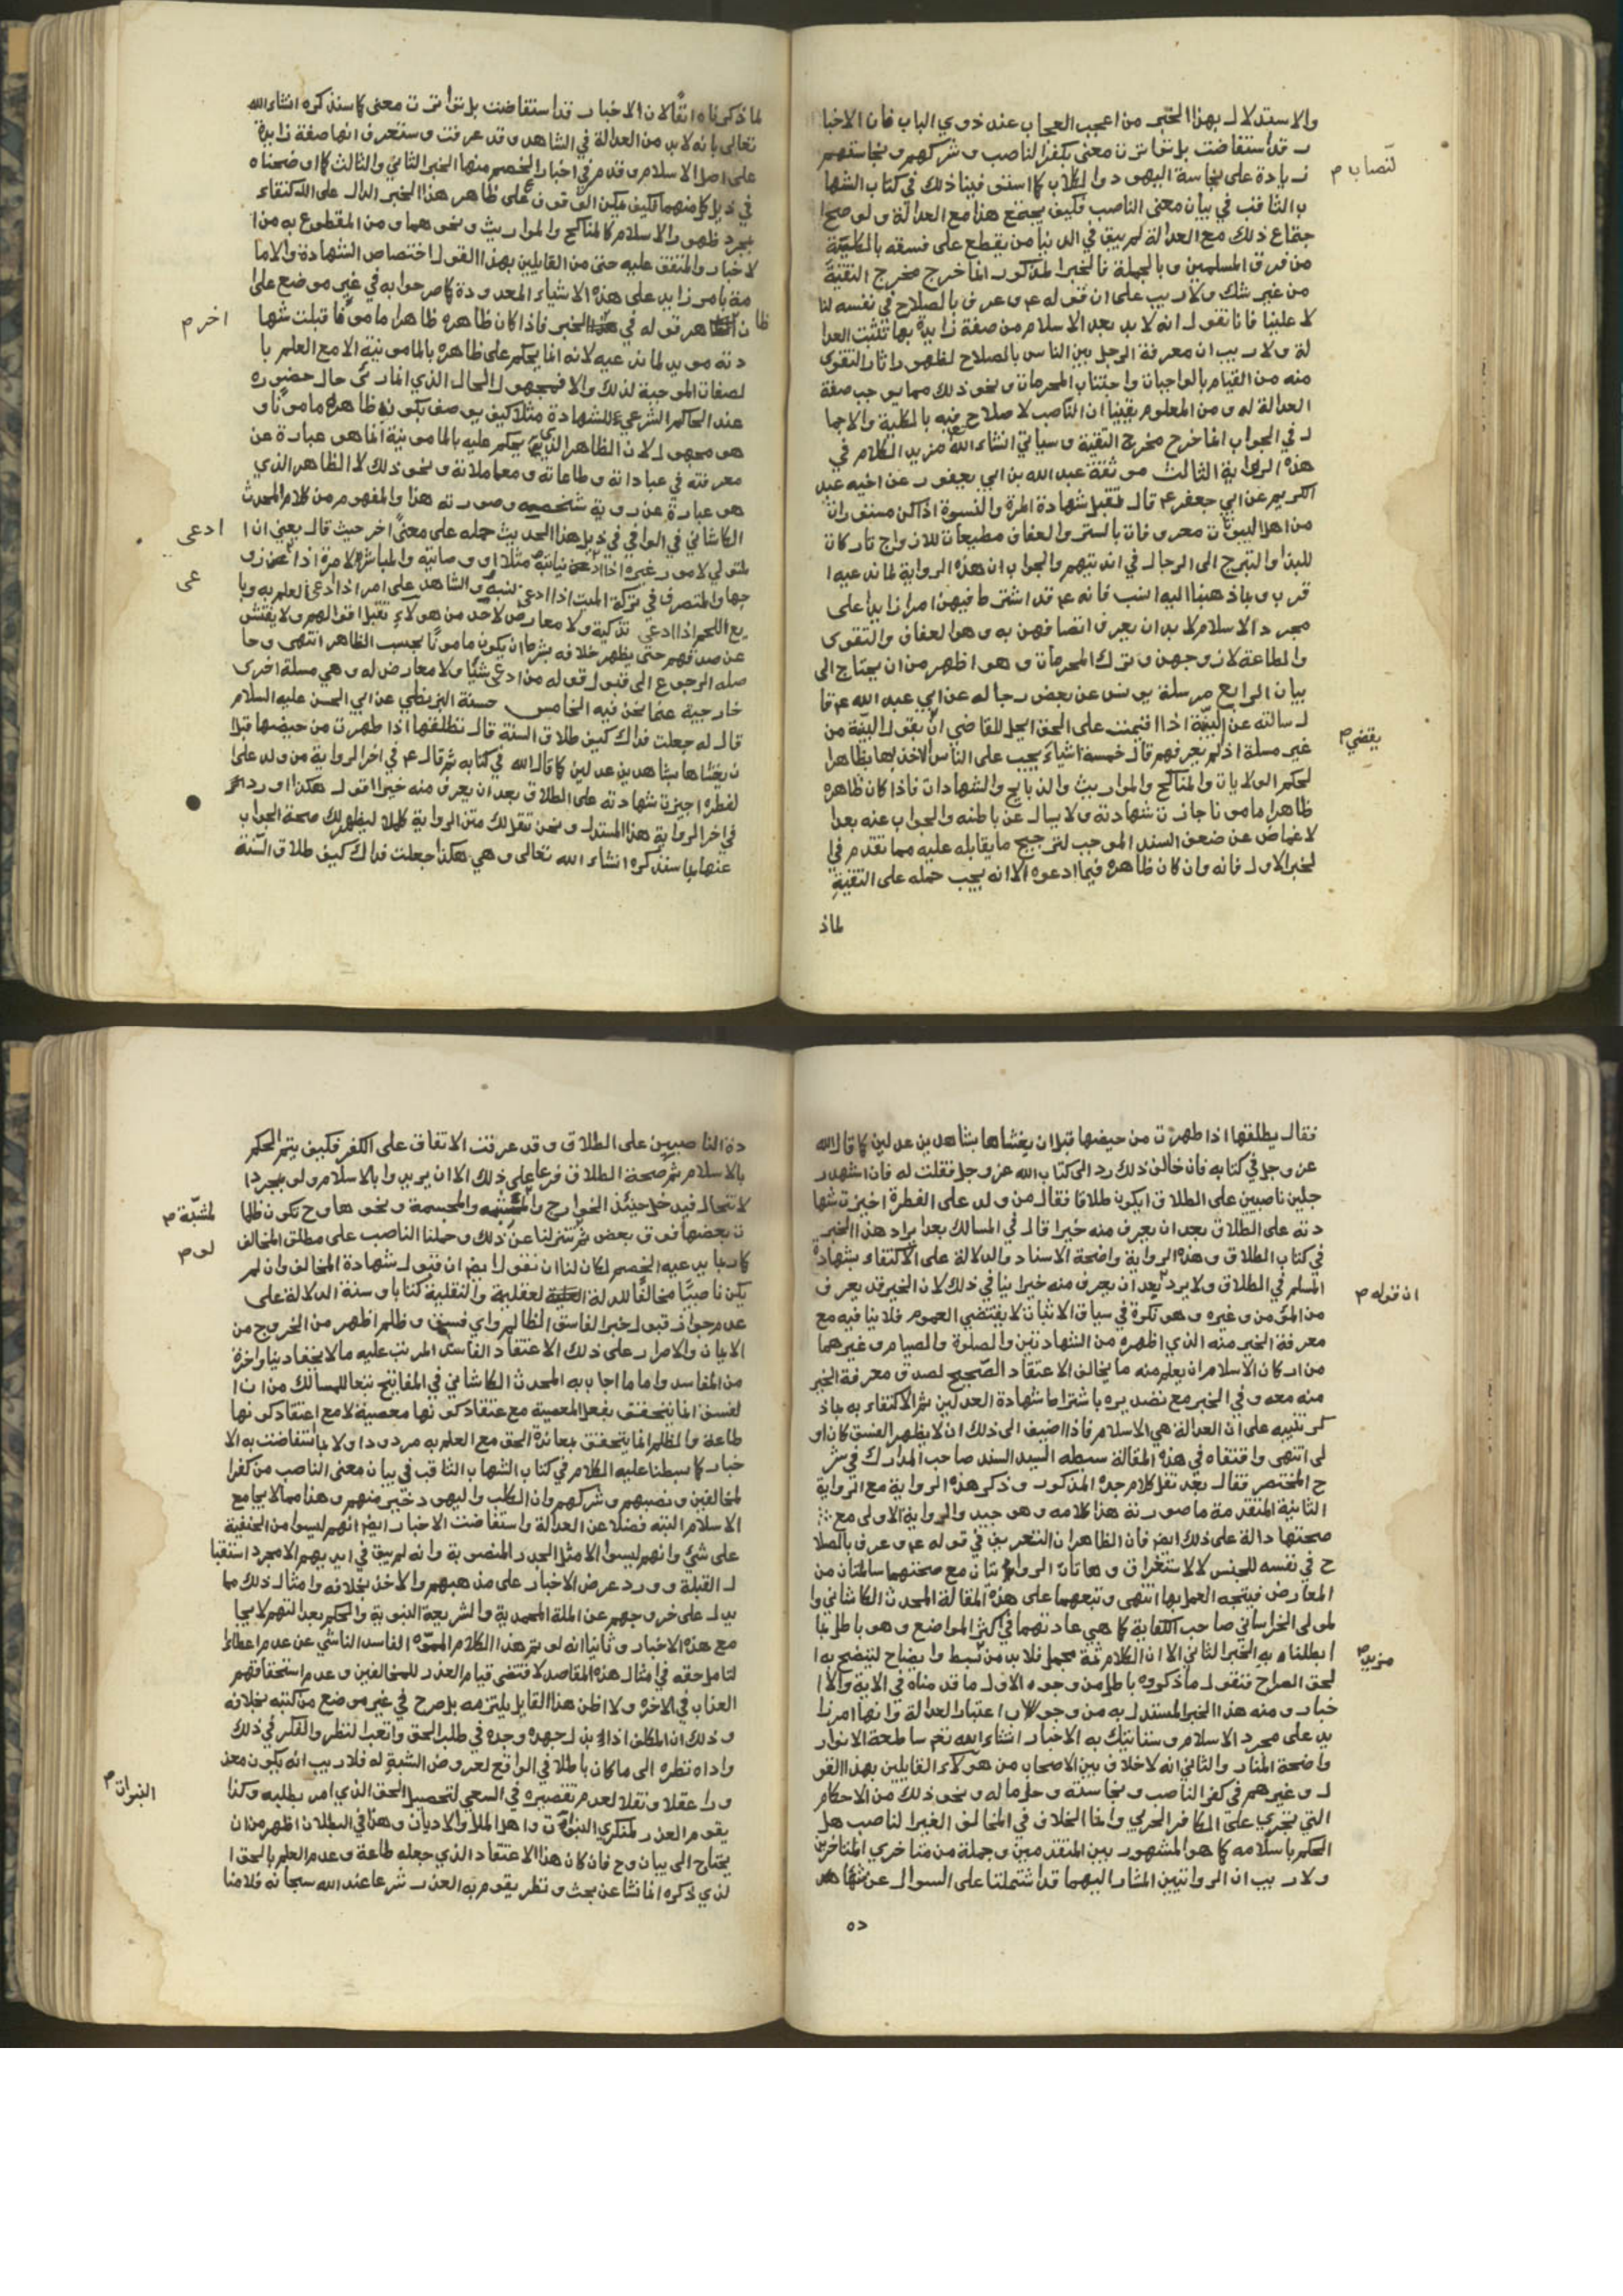 والاستدلال بهذا الخبر من اعجب العجاب عند ذوي الباب فان الاخبا
ر قد استفاضت بل تواترت معنى بكفر الناصب وشركهم ونجاستهم
لنصاب م
زيادة على نجاسة اليهود والكلاب كما استوفينا ذلك في كتاب الشها
ب الثاقب في بيان معنى الناصب فكيف يجتمع هذا مع العدالة ولو صح ا
جتماع ذلك مع العدالة لم يبق في الدنيا من يقطع على فسقه بالكلية
من فرق المسلمين وبالجملة فالخبر المذكور انما خرج مخرج التقية
من غير شك ولا ريب على ان قوله ع وعرف بالصلاح في نفسه لنا
لا علينا فانا نقول انه لا بد بعد الاسلام من صفة زايدة بها تثبت العدا
لة ولا ريب ان معرفة الرجل بين الناس بالصلاح لظهور اثار التقوى
منه من القيام بالواجبات واجتناب المحرمات ونحو ذلك مما يوجب صفة
العدالة له ومن المعلوم يقينا ان الناصب لا صلاح فيه بالكلية والاجما
ل في الجواب انما خرج مخرج التقية وسياتي انشاء الله مزيد الكلام في
هذه الرواية الثالث موثقة عبد الله بن ابي يعفور عن اخيه عبد
الكريم عن ابي جعفر ع قال تقبل شهادة المرة والنسوة اذا كن مستورات
من اهل البيوتات معروفات بالستر والعفاف مطيعات للازواج تاركات
للبذا والتبرج الى الرجال في انديتهم والجواب ان هذه الرواية لما ندعيه ا
قرب وبما ذهبنا اليه انسب فانه ع قد اشترط فيهن امرا زايدا على
مجرد الاسلام لا بد ان يعرف اتصافهن به وهو العفاف والتقوى
والطاعة لازوجهن وترك المحرمات وهو اظهر من ان يحتاج الى
بيان الرابع مرسلة يونس عن بعض رجاله عن ابي عبد الله ع قا
ل سالته عن البينة اذا اقيمت على الحق ايحل للقاضي ان يقول البينة من
يقضي م
غير مسلة اذا لم يعرفهم قال خمسة اشياء يجب على الناس الاخذ بها بظاهر ا
لحكم الولايات والمناكح والمواريث والذبايح والشهادات فاذا كان ظاهره
ظاهرا مامونا جازت شهادته ولا يسال عن باطنه والجواب عنه بعد ا
لاغماض عن ضعف السند الموجب لترجيح ما يقابله عليه مما تقدم في ا
لخبر الاول فانه وان كان ظاهره فيما ادعوه الا انه يجب حمله على التقية
لماذ
لما ذكرناه انفا لان الاخبار قد استفاضت بل تواترت معنى كما سنذكره انشاء الله
تعالى بانه لا بد من العدالة في الشاهد وقد عرفت وستعرف انها صفة زايدة
على اصل الاسلام وقد مر في اخبار الخصم منها الخبر الثاني والثالث كما اوضحناه
في ذيل كل منهما فكيف يمكن الوقوف على ظاهر هذا الخبر الدال على الاكتفاء
بمجرد ظهور الاسلام كالمناكح والمواريث ونحوهما ومن المقطوع به من ا
لاخبار والمتفق عليه حتى من القايلين بهذا القول اختصاص الشهادة والاما
مة بامر زايد على هذه الاشياء المعدودة كما صرحوا به في غير موضع على ا
ن ظاهر قوله في الخبر فاذا كان ظاهره ظاهرا مامونا قبلت شها
اخر م
دته مويد لما ندعيه لانه انما يحكم على ظاهره بالمامونية الا مع العلم با
لصفات الموجبة لذلك والا فمجهول الحال الذي انما رئى حال حضوره
عند الحاكم الشرعي للشهادة مثلا كيف يوصف بكون ظاهره مامونا و
هو مجهول لان الظاهر الذي يحكم عليه بالمامونية انما هو عبارة عن
معرفته في عباداته وطاعاته ومعاملاته ونحو ذلك لا الظاهر الذي
هو عبارة عن روية شخصه وصورته هذا والمفهوم من كلام المحدث
الكاشاني في الوافي في ذيل هذا الحديث حمله على معنى اخر حيث قال يعني ان ا
ادعى
لمتولي لامور غيره اذا ادعى نيابته مثلا او وصايته والمباشر لامرة اذا ادعى زو
جها والمتصرف في تركة الميت اذا ادعى نسبه والشاهد على امر اذا ادعى العلم به وبا
عى
يع اللحم اذا ادعى تذكية ولا معارض لاحد من هولاء تقبل اقوالهم ولا يفتش
عن صدقهم حتى يظهر خلافه بشرط ان يكون مامونا بحسب الظاهر انتهى وحا
صله الرجوع الى قبول قوله من ادعى شيئا ولا معارض له وهي مسلة اخرى
خارجية عما نحن فيه الخامس حسنة البزنطي عن ابي الحسن عليه السلام
قال له جعلت فداك كيف طلاق السنة قال تطلقها اذا طهرت من حيضها قبل ا
ن يغشاها بشاهدين عدلين كما قال الله في كتابه ثم قال ع في اخر الرواية من ولد على ا
لفطره اجيزت شهادته على الطلاق بعد ان يعرف منه خير اقول هكذا اورد
في اخر الرواية هذا المستدل ونحن ننقل لك متن الرواية كملا ليظهر لك صحة الجواب
عنها بما سنذكره انشاء الله تعالى وهي هكذا جعلت فداك كيف طلاق السنة
فقال يطلقها اذا طهرت من حيضها قبل ان يغشاها بشاهدين عدلين كما قال الله
عز وجل في كتابه فان خالف ذلك رد الى كتاب الله عز وجل فقلت له فان اشهد ر
جلين ناصبيين على الطلاق ايكون طلاقا فقال من ولد على الفطرة اجيزت شها
دته على الطلاق بعد ان يعرف منه خيرا قال في المسالك بعد ايراد هذا الخبر
في كتاب الطلاق وهذه الرواية واضحة الاسناد والدلالة على الاكتفاء بشهادة
المسلم في الطلاق ولا يرد بعد ان يعرف منه خيرا ينافي ذلك لان الخير قد يعرف
ان قوله م
من المؤمن وغيره وهو نكرة في سياق الاثبات لا يقتضي العموم فلا ينافيه مع
معرفة الخير منه الذي اظهره من الشهادتين والصلوة والصيام وغيرهما
من اركان الاسلام ان يعلم منه ما يخالف الاعتقاد الصحيح لصدق معرفة الخير
منه معه وفي الخبر مع تصديره باشتراط شهادة العدلين ثم الاكتفاء به بماذ
كر تنبيه على ان العدالة هي الاسلام فاذا اضيف الى ذلك ان لا يظهر الفسق كان او
لى انتهى واقتفاه في هذه المقالة سبطه السيد السند صاحب المدارك في شر
ح المختصر فقال بعد نقل كلام جده المذكور وذكر هذه الرواية مع الرواية
الثانية المتقدمة ما صورته هذا كلامه وهو جيد والرواية الاولى مع
صحتها دالة على ذلك ايضا فان الظاهر ان التعريف في قوله ع وعرف بالصلا
ح في نفسه للجنس لا للاستغراق وهاتان الروايتان مع صحتهما سالمتان من
المعارض فيتجه العمل بها انتهى وتبعهما على هذه المقالة المحدث الكاشاني وا
لمولى الخراساني صاحب الكفاية كما هي عادتهما في اكثر المواضع وهو باطل بما
ابطلناه به الخبر الثاني الا ان الكلام ثمة مجمل فلا بد من بسط وايضاح ليتضح به ا
مزيد م
لحق الصراح فنقول ما ذكروه باطل من وجوه الاول ما قدمناه في الاية والا
خبار ومنه هذا الخبر المستدل به من وجوب اعتبار العدالة وانها امر زا
يد على مجرد الاسلام وستاتيك به الاخبار انشاء الله تعم ساطعة الانوار
واضحة المنار والثاني انه لا خلاف بين الاصحاب من هولاء القايلين بهذا القو
ل وغيرهم في كفر الناصب ونجاسته وحل ماله ونحو ذلك من الاحكام
التي تجري على الكافر الحربي وانما الخلاف في المخالف الغير الناصب هل
الحكم باسلامه كما هو المشهور بين المتقدمين وجملة من متاخري المتاخرين
ولا ريب ان الروايتين المشار اليهما قد اشتملتا على السوال عن شها
ده
دة الناصبيين على الطلاق وقد عرفت الاتفاق على الكفر فكيف يتم الحكم
بالاسلام ثم صحة الطلاق فرعا على ذلك الا ان يريدوا بالاسلام ولو بمجرد ا
لانتحال فيدخل حينئذ الخوارج والمجسمة ونحوها وح تكون ظلما
لمشبة م
ت بعضها فوق بعض ثم تنزلنا عن ذلك وحملنا الناصب على مطلق المخالف
لو م
كما ربما يدعيه الخصم لكان لنا ان نقول ايضا ان قبول شهادة المخالف وان لم
يكن ناصبيا مخالفا للدلة العقلية والنقلية كتابا وسنة الدلالة على
عدم جواز قبول خبر الفاسق الظالم واي فسق وظلم اظهر من الخروج من
الايمان والاصرار على ذلك الاعتقاد الفاسد المرتب عليه ما لا يخفى دنيا واخرة
من المفاسد واما ما اجاب به المحدث الكاشاني في المفاتيح تبعا للمسالك من ان ا
لفسق انما يتحقق بفعل المعصية مع عتقاد كونها معصية لا مع اعتقاد كونها
طاعة والظلم انما يتحقق بمعاندة الحق مع العلم به مردود اولا بما استفاضت به الا
خبار كما بسطنا عليه الكلام في كتاب الشهاب الثاقب في بيان معنى الناصب من كفر ا
لمخالفين ونصبهم وشركهم وان الكلب واليهود خير منهم وهذا مما لا يجامع
الاسلام البته فضلا عن العدالة واستفاضت الاخبار ايضا انهم ليسوا من الحنفية
على شئ وانهم ليسوا الا مثل الجدر المنصوبة وانه لم يبق في ايديهم الا مجرد استقبا
ل القبلة وورد عرض الاخبار على مذهبهم والاخذ بخلافه وامثال ذلك مما
يدل على خروجهم عن الملة المحمدية والشريعة النبوية والحكم بعدالتهم لا يجا
مع هذه الاخبار وثانيا انه لو تم هذا الكلام المموه الفاسد الناشي عن عدم اعطاء ا
لتامل حقه في امثال هذه المقاصد لاقتضى قيام العذر للمخالفين وعدم استحقاقهم
العذاب في الاخره ولا اظن هذا القايل يلتزمه بل صرح في غير موضع من كتبه بخلافه
وذلك ان المكلف اذا بذل جهده وجده في طلب الحق واتعب النظر والفكر في ذلك
واداه نظره الى ما كان باطلا في الواقع لعروض الشبه له فلا ريب انه يكون معذ
ورا عقلا ونقلا لعدم تقصيره في السعي لتحصيل الحق الذي امر بطلبه وكذا
النبوات م
يقوم العذر لمنكري النبوات واهل الملل والاديان وهذا في البطلان اظهر من ان
يحتاج الى بيان وح فان كان هذا الاعتقاد الذي جعله طاعة وعدم العلم بالحق ا
لذي ذكره انما نشا عن بحث ونظر يقوم به العذر شرعا عند الله سبحانه فلا منا